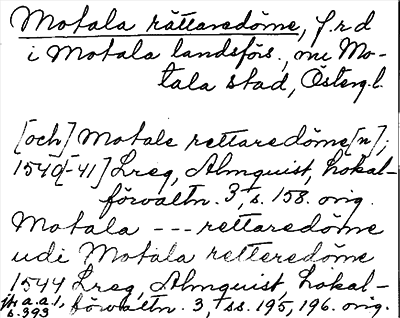 Motala rättaredöme, f.r.d
i Motala landsförs., nu Mo-
tala stad, Österg.l.
[och] Motale rettaredöme[n];
1540[-41] Lreg, Almquist, Lokal-
förvaltn. 3, s. 158. orig.
Motala --- rettaredöme
udi Motala retteredöme
1544 Lreg, Almquist, Lokal-
förvaltn. 3, ss. 195, 196. orig.
jfr a.a.1,
s.393